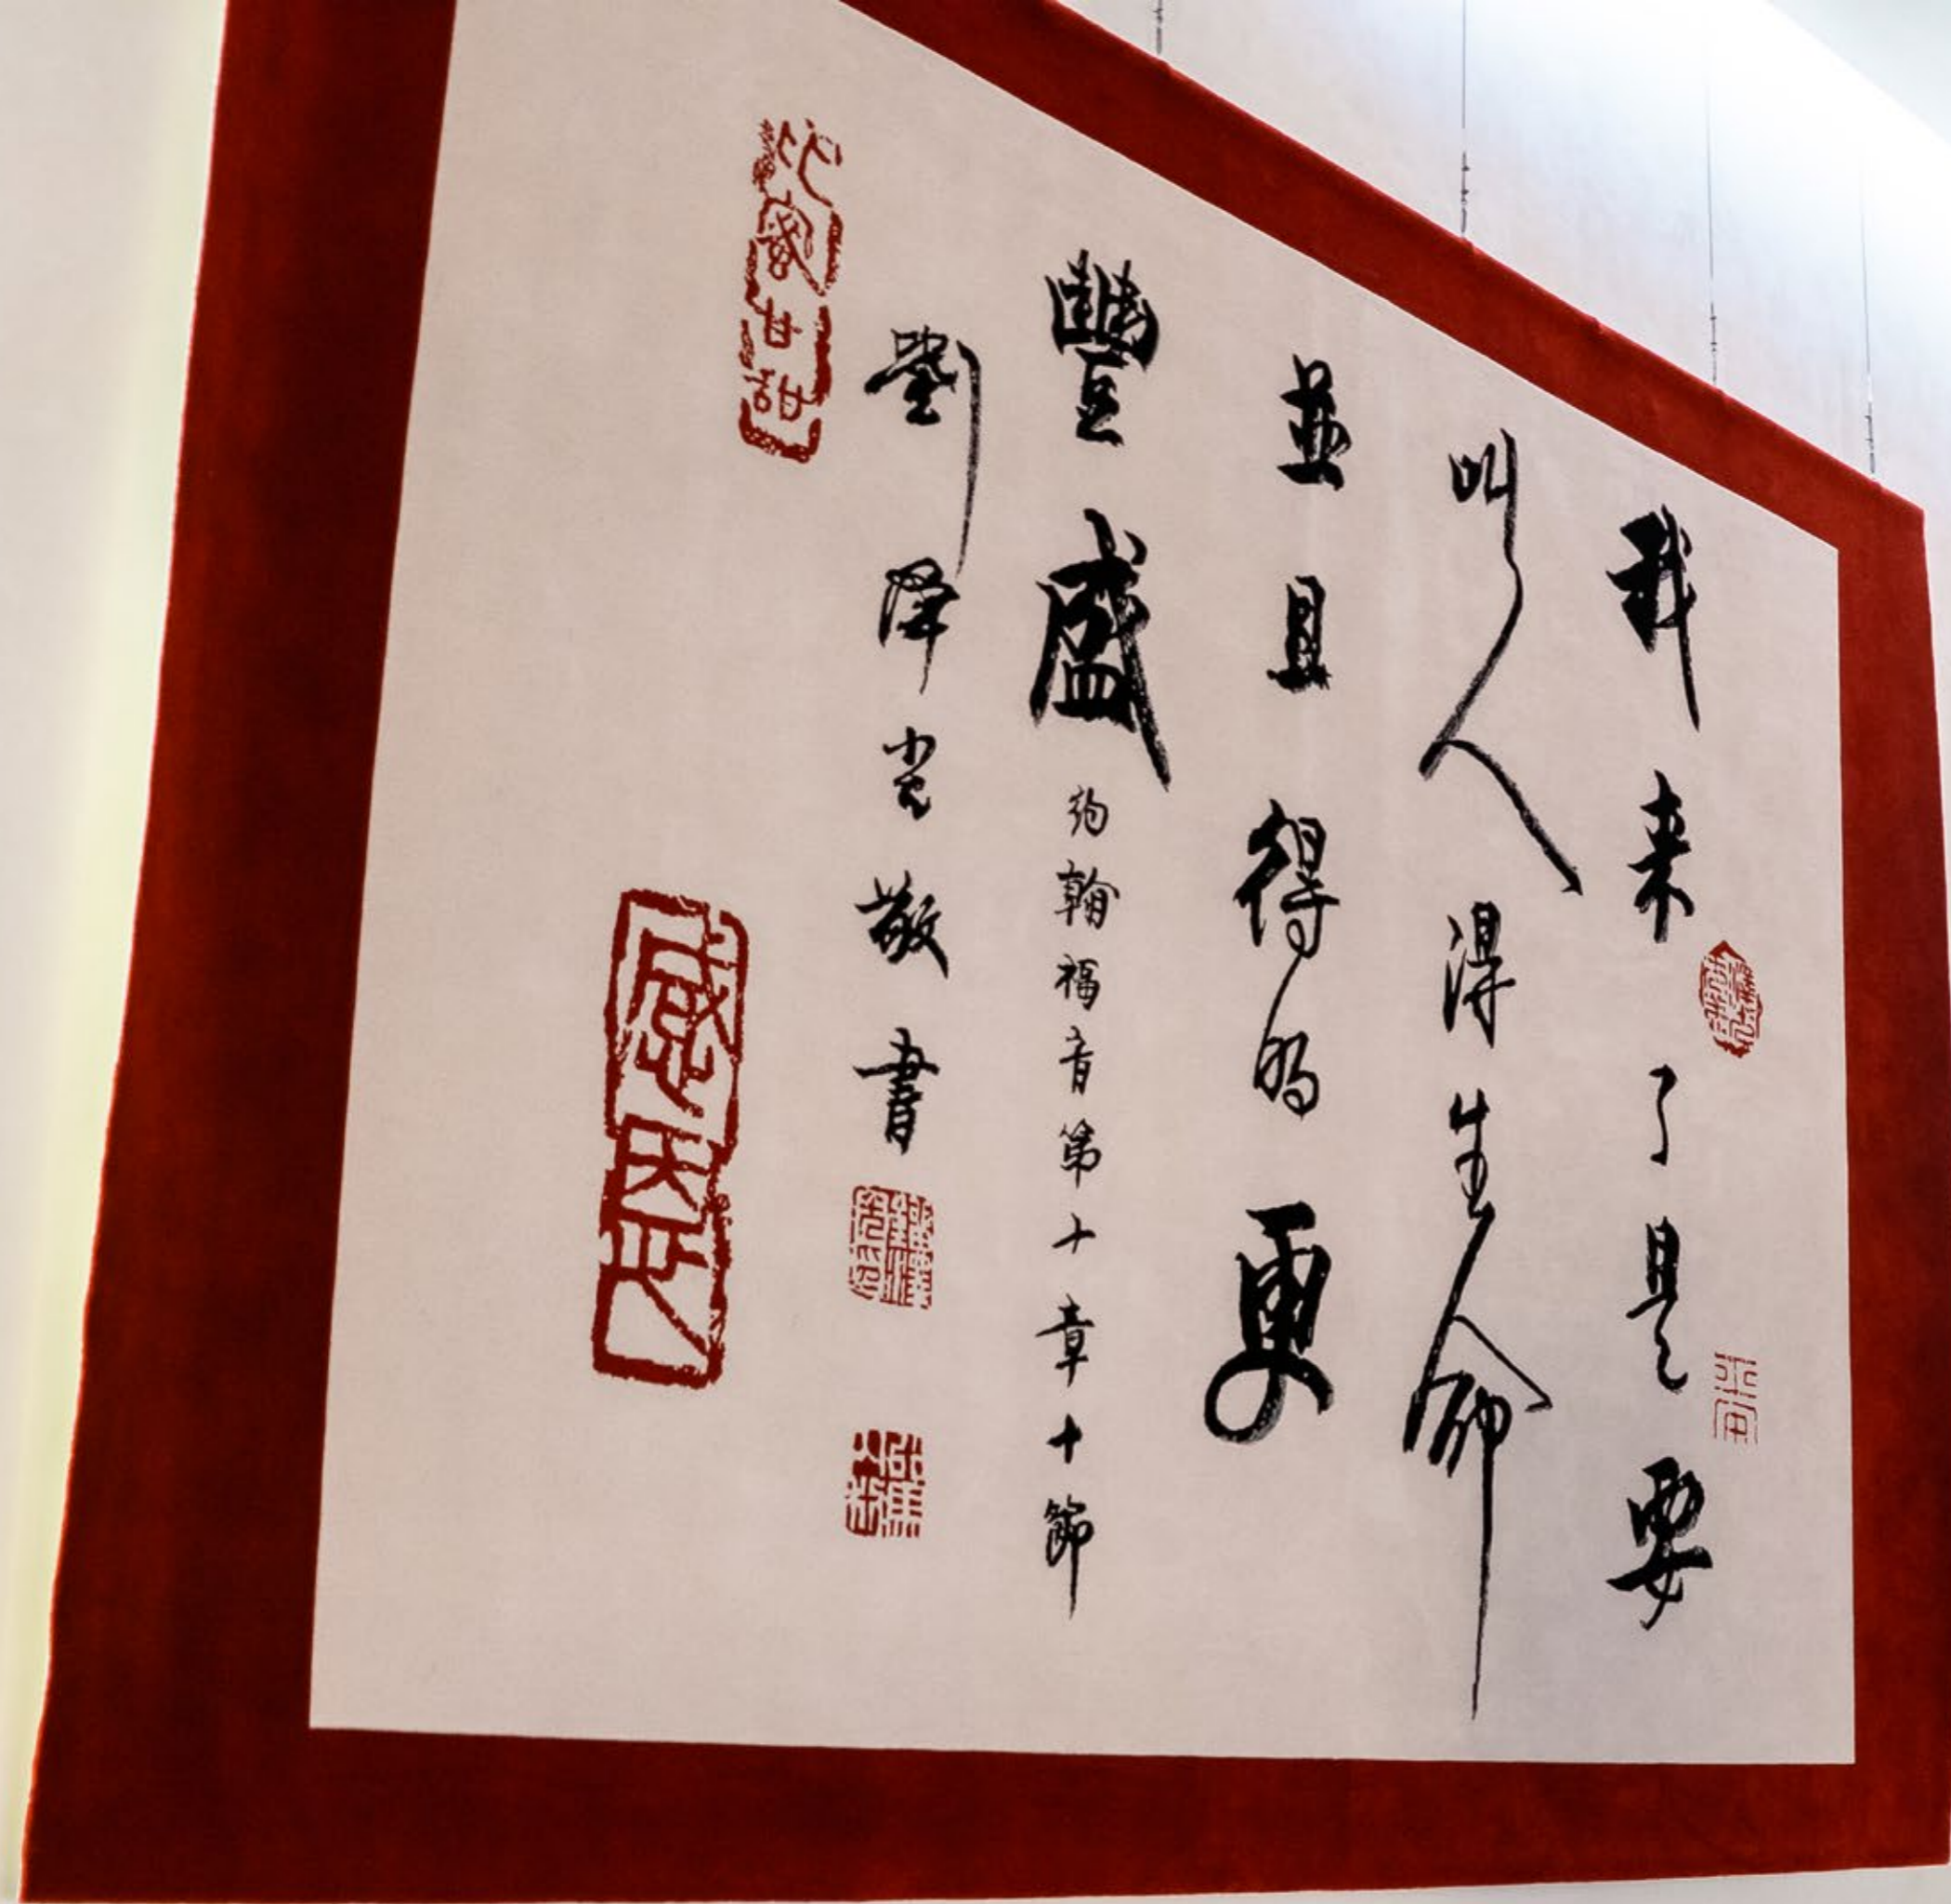 我来了是要
叫人得生命
並且得的更
豐盛 約翰福音第十章十節
劉澤光敬書
感恩